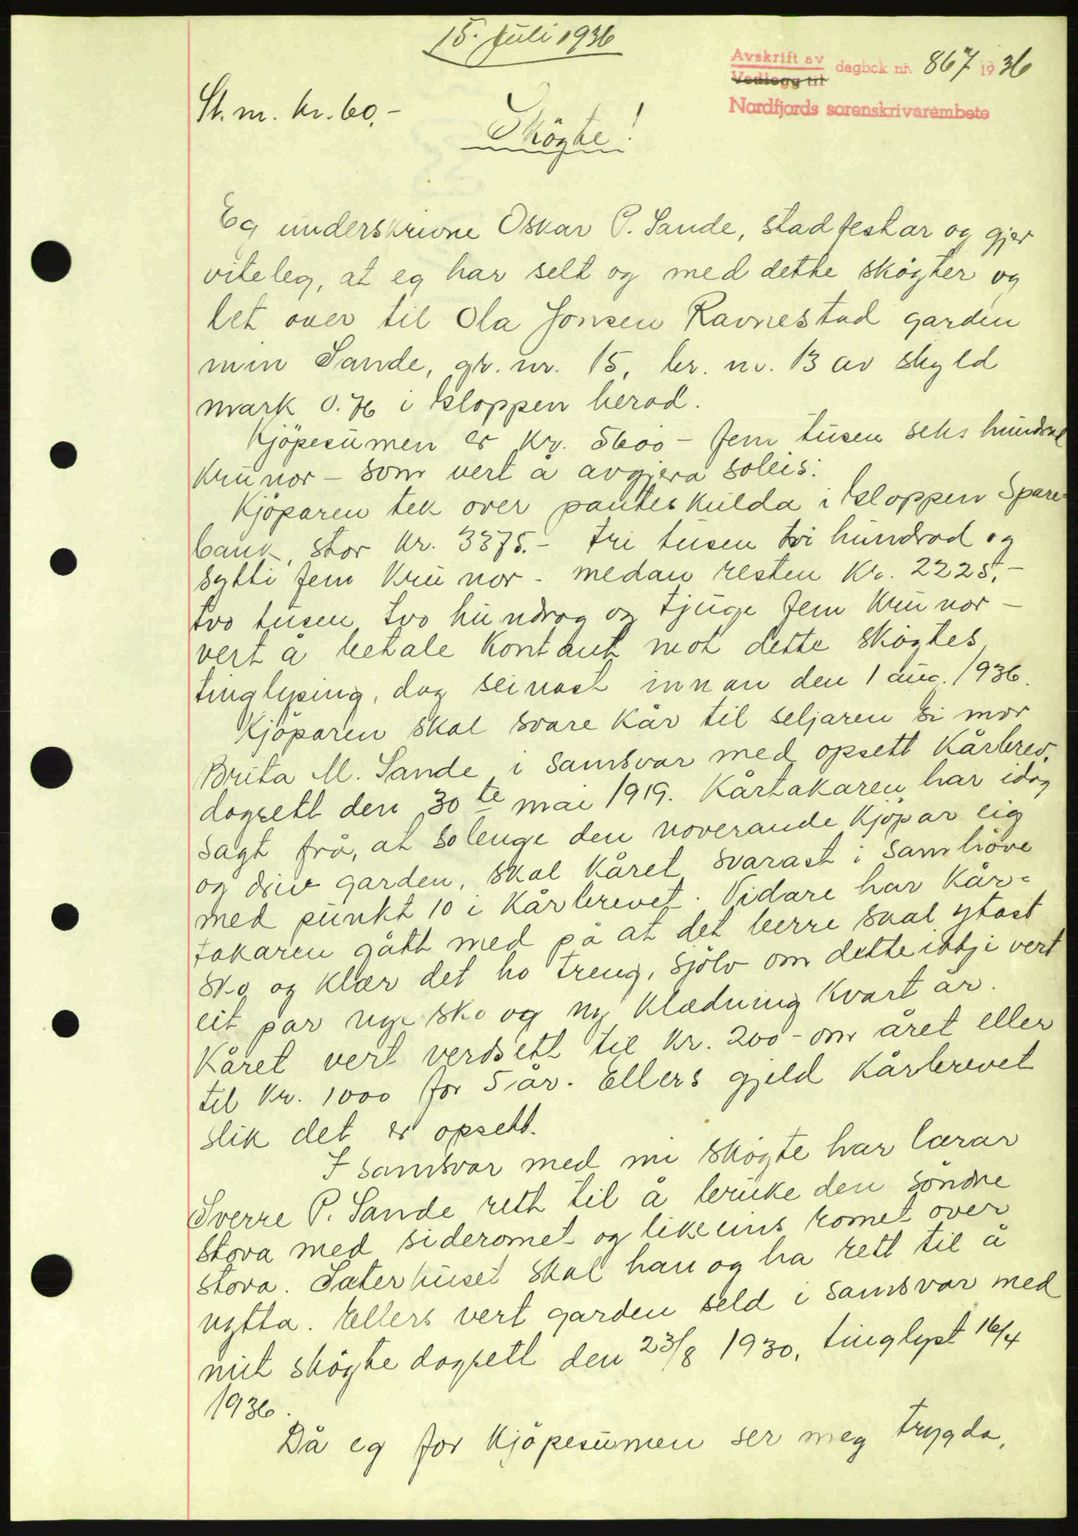 15. juli 1936
Avskrift av
Vedlegg til dagbok nr. 867 1936
Nordfjords sorenskriverembete
St. m. kr. 60.-
Skøgte!
Eg underskrivne Oskar P. Sande, stadfestar og gjer
viteleg, at eg har selt og med dette skøgter og
let over til Ola Jonsen Ravnestad garden
min Sande, gr. nr. 15, br. nr. 13 av skyld
mark 0.76 i Gloppen herad.
Kjøpesumen er kr. 5600 - fem tusen seks hundrad
krunor - som vert å avgjera soleis:
Kjøparen tek over panteskulda i Gloppen Spare-
bank, stor kr. 3375.- tri tusen tri hundrad og
sytti fem krunor - medan resten kr. 2225.-
tvo tusen tvo hundrag og tjuge fem krunor -
vert å betale kontant mot dette skøgtes
tinglysing, dog seinast innan den 1 aug. 1936.
Kjøparen skal svare kår til seljaren si mor
Brita M. Sande i samsvar med opsett kårbrev,
dagsett den 30te mai 1919. Kårtakaren har idag
sagt frå, at solenge den noverande kjøpar eig
og driv garden, skal kåret svarast i samhøve
med punkt 10 i kårbrevet. Vidare har kår-
takaren gått med på at det berre skal ytast
sko og klær det ho treng, sjølv om dette ikkje vert
eit par nye sko og ny klædning kvart år.
Kåret vert verdsett til kr. 200 - om året eller
til kr. 1000 for 5 år. Ellers gjeld kårbrevet
slik det er opsett.
I samsvar med mi skøgte har lærar
Sverre P. Sande rett til å bruke den søndre
stova med sideromet og likeeins romet over
stova. Sæterhuset skal han og ha rett til å
nytta. Ellers vert garden seld i samsvar med
mit skøgte dagsett den 23/8 1930, tinglyst 16/4
1936.
Då eg for kjøpesumen ser meg trygda,